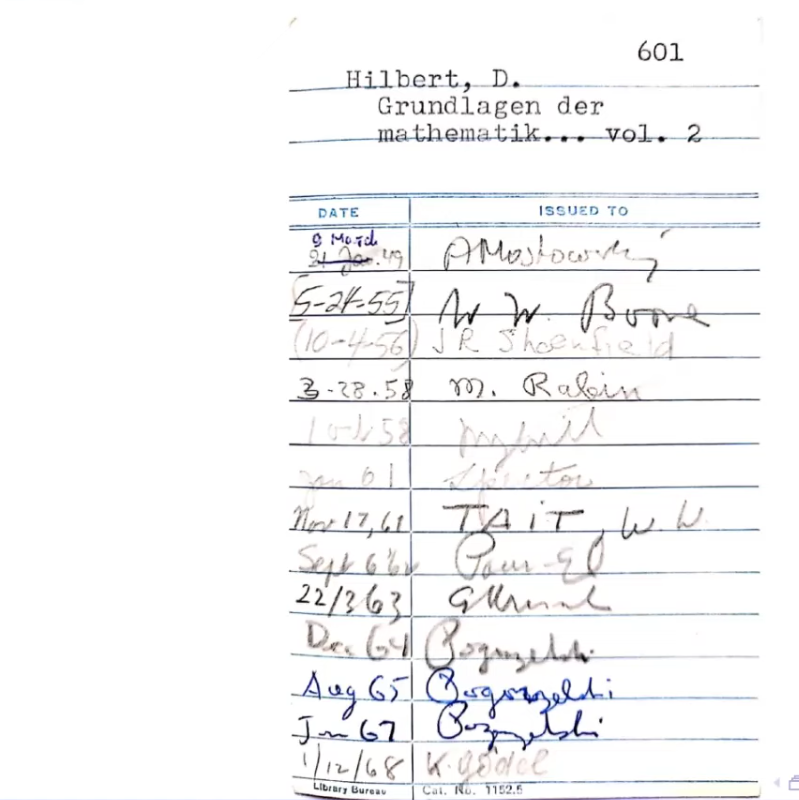 601
Hilbert, D.
Grundlagen der
mathematik... vol. 2
DATE ISSUED TO
9 March
21 Jan. 49 A Mostowski
[5-24-55] W W. Boone
(10-4-56) J R Shoenfield
3-28.58 M. Rabin
10-1-58 Myhill
Jan 61 Spector
Nov 17, 61 TAIT, W. W.
Sept 6 62 Pour-El
22/3 63 G Kreisel
Dec 64 Pogorzelski
Aug 65 Pogorzelski
Jan 67 Pogorzelski
1/12/68 K. Gödel
Library Bureau Cat. No. 1152.5